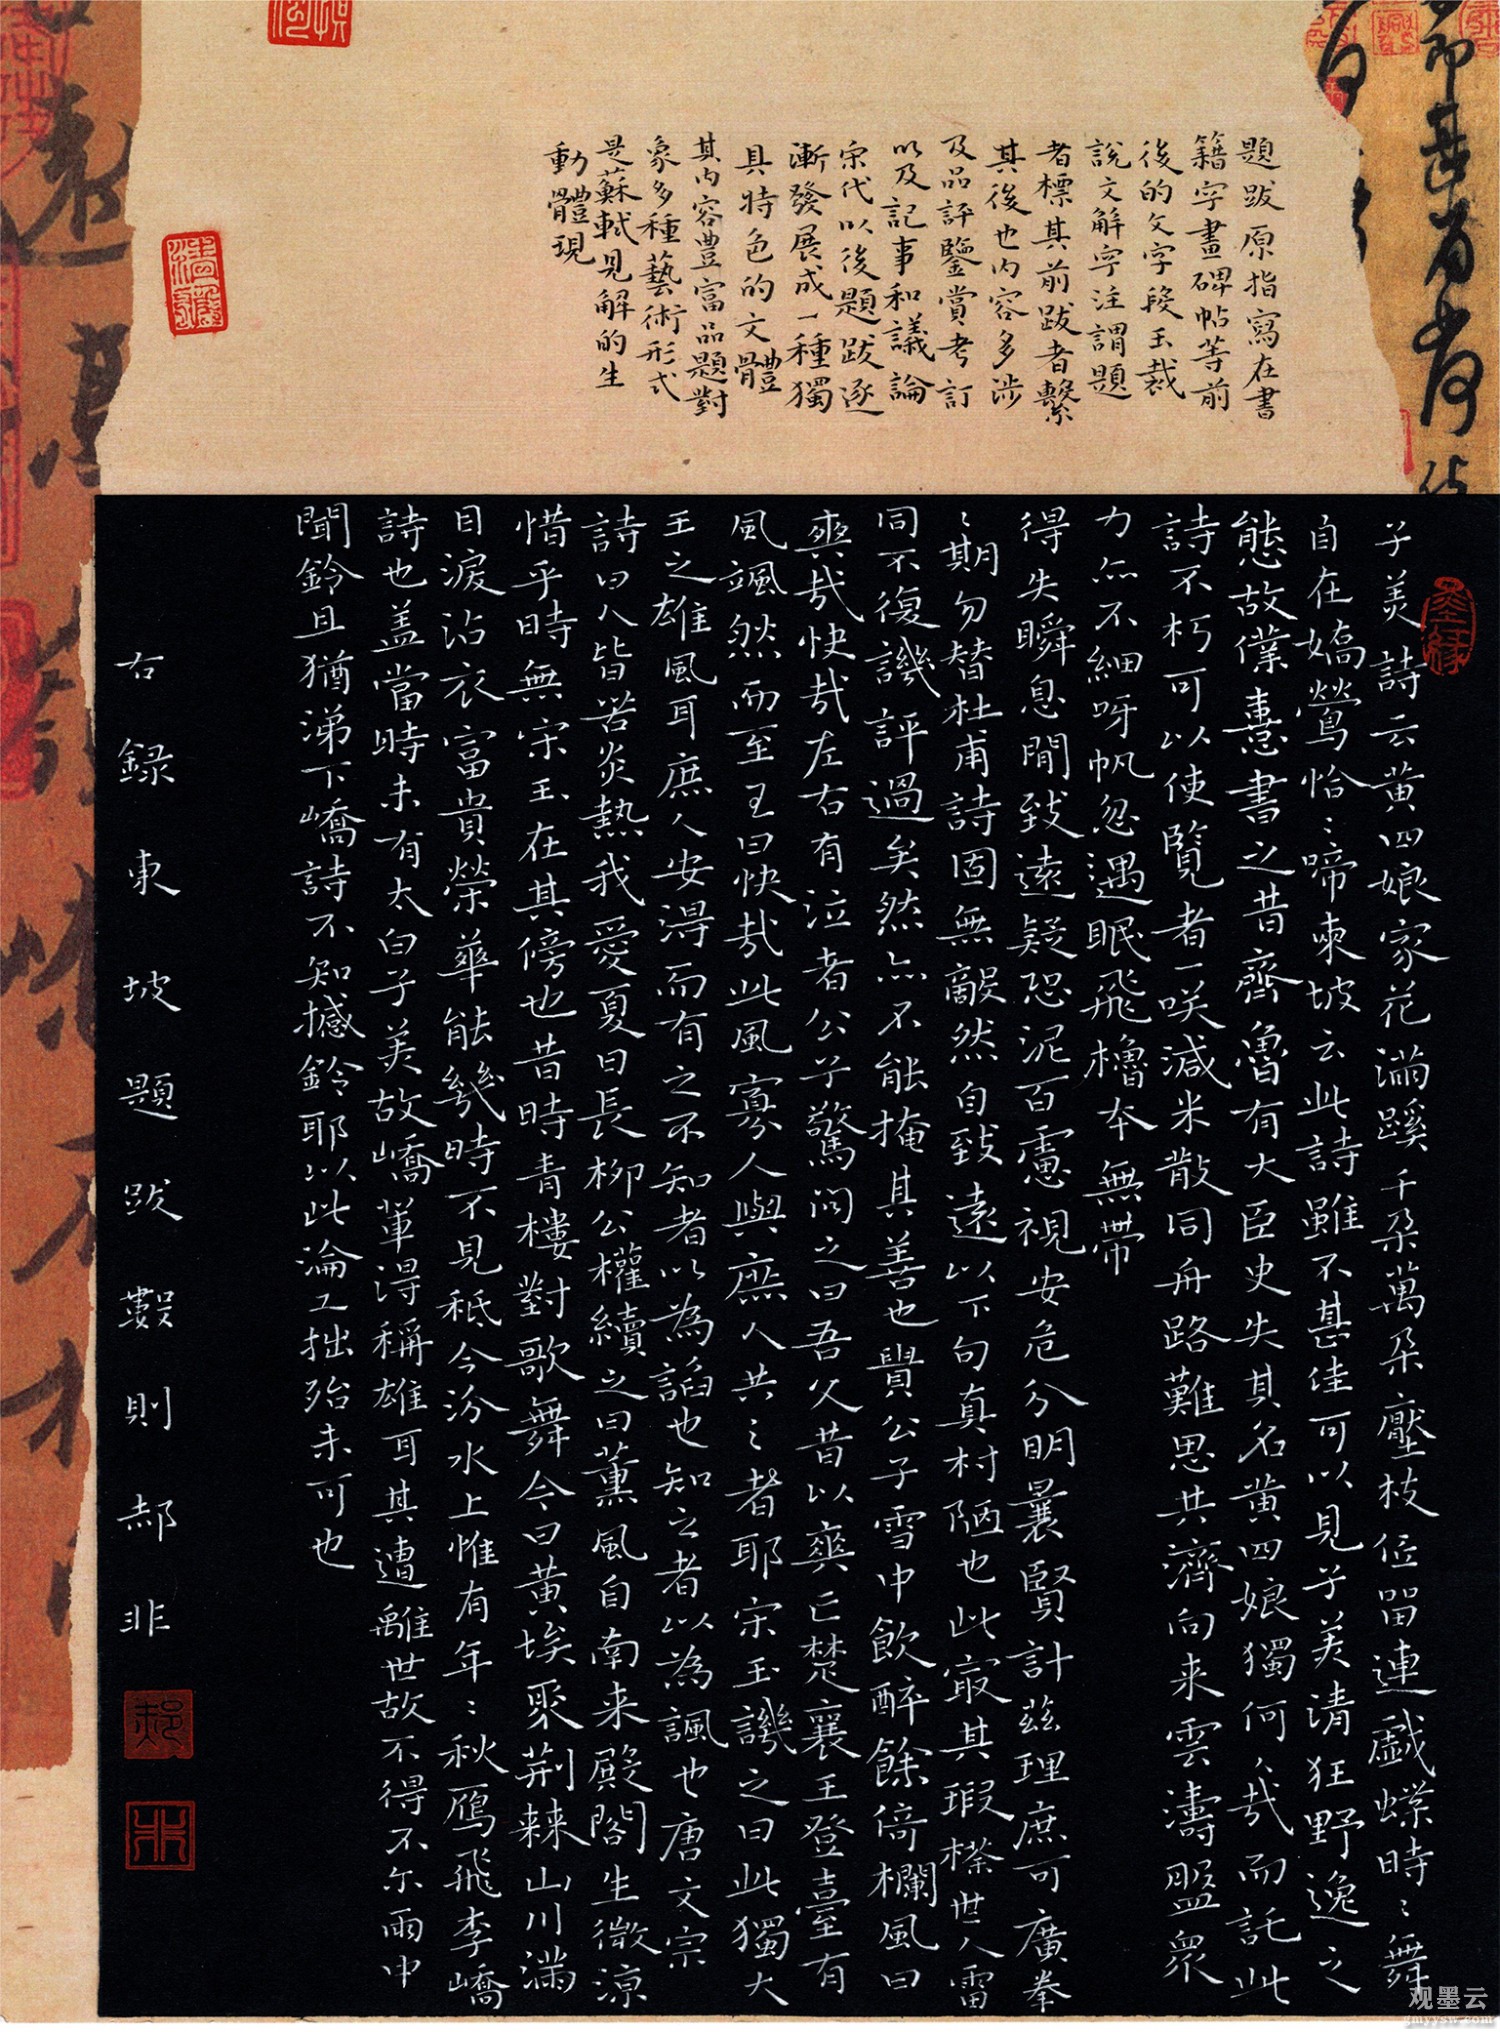 題跋原指寫在書
籍字畫碑帖等前
後的文字段玉裁
說文解字注謂題
者標其前跋者繫
其後也内容多涉
及品評鑒賞考訂
以及記事和議論
宋代以後題跋逐
漸發展成一種獨
具特色的文體
其内容豊富品題對
象多種藝術形式
是蘇軾見解的生
動體現
子美詩云黄四娘家花滿蹊千朵萬朵壓枝低留連戲蝶時〻舞
自在嬌鶯恰〻啼東坡云此詩雖不甚佳可以見子美清狂野逸之
態故僕憙書之昔齊魯有大臣史失其名黄四娘獨何人哉而託此
詩不朽可以使覽者一咲減米散同舟路難思共濟向来雲濤盟衆
力亦不細呀帆忽遇眠飛櫓本無帶
得失瞬息間致遠疑恐泥百慮視安危分明曩賢計茲理庶可廣拳
〻期勿替杜甫詩固無敵然自致遠以下句真村陋也此寂其瑕㯳世人雷
同不復譏評過矣然亦不能掩其善也貴公子雪中飲醉餘倚欄風曰
爽哉快哉左右有泣者公子驚问之曰吾父昔以爽亡楚襄王登臺有
風颯然而至王曰快哉此風寡人與庶人共之者耶宋玉譏之曰此獨大
王之雄風耳庶人安得而有之不知者以為諂也知之者以為諷也唐文宗
詩曰人皆苦炎熱我愛夏日長柳公權續之曰薰風自南来殿閣生微涼
惜乎時無宋玉在其傍也昔時青樓對歌舞今日黄埃聚荆棘山川滿
目淚沾衣富貴榮華能幾時不見秪今汾水上惟有年〻秋鴈飛李嶠
詩也盖當時未有太白子美故嶠軰得稱雄耳其遭離世故不得不尓雨中
聞鈴且猶涕下嶠詩不知撼鈴耶以此淪工拙殆未可也
右録東坡題跋數則郝非
观墨云
gmyysw.com